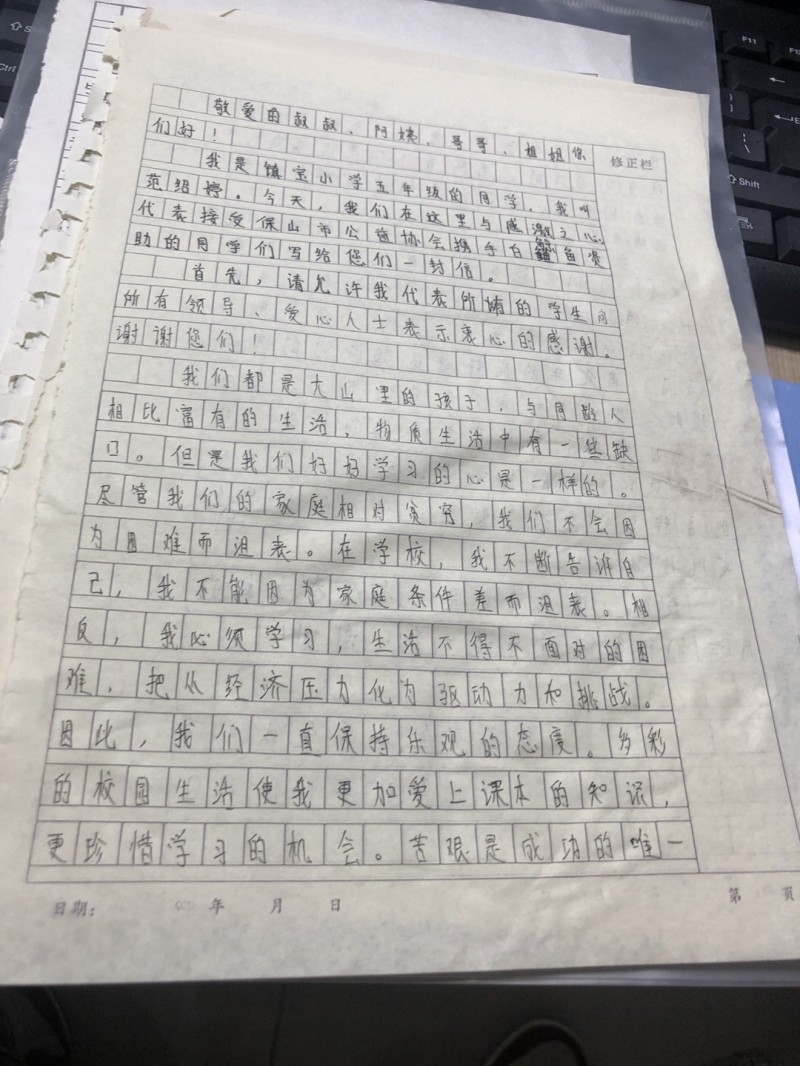 敬爱的叔叔、阿姨、哥哥、姐姐您
们好！
修正栏
我是镇宝小学五年级的同学，我叫
范绍婷。今天，我们在这里与感激之心
代表接受保山市公益协会携手白鲸鱼资
助的同学们写给您们一封信。
首先，请允许我代表所有的学生向
所有领导、爱心人士表示衷心的感谢。
谢谢您们！
我们都是大山里的孩子，与同龄人
相比富有的生活，物质生活中有一些缺
口。但是我们好好学习的心是一样的。
尽管我们的家庭相对贫穷，我们不会因
为困难而沮丧。在学校，我不断告诉自
己，我不能因为家庭条件差而沮丧。相
反，我必须学习，生活不得不面对的困
难，把从经济压力化为驱动力和挑战。
因此，我们一直保持乐观的态度。多彩
的校园生活使我更加爱上课本的知识，
更珍惜学习的机会。苦艰是成功的唯一
日期： 年 月 日
第 页
F11
Ctrl
Shift